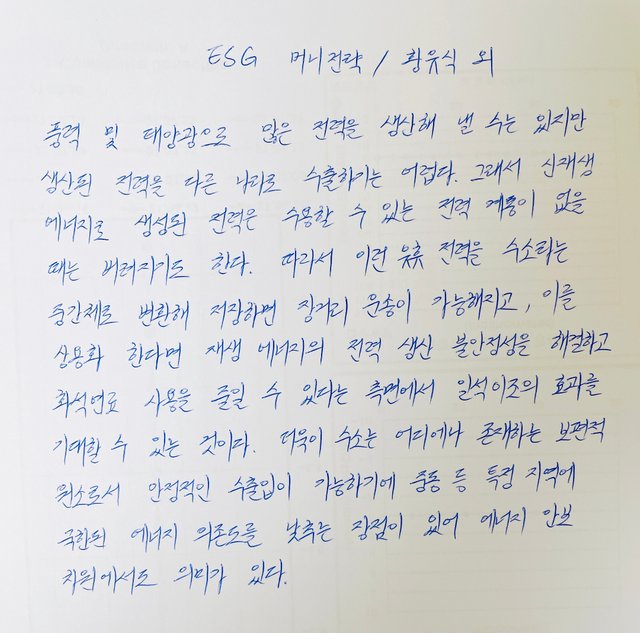 ESG 머니전략 / 황유식 외
풍력 및 태양광으로 많은 전력을 생산해 낼 수는 있지만
생산된 전력을 다른 나라로 수출하기는 어렵다. 그래서 신재생
에너지로 생성된 전력은 수용할 수 있는 전력 계통이 없을
때는 버려지기도 한다. 따라서 이런 유휴 전력을 수소라는
중간체로 변환해 저장하면 장거리 운송이 가능해지고, 이를
상용화 한다면 재생 에너지의 전력 생산 불안정성을 해결하고
화석연료 사용을 줄일 수 있다는 측면에서 일석이조의 효과를
기대할 수 있는 것이다. 더욱이 수소는 어디에나 존재하는 보편적
원소로서 안정적인 수출입이 가능하기에 중동 등 특정 지역에
국한된 에너지 의존도를 낮추는 장점이 있어 에너지 안보
차원에서도 의미가 있다.